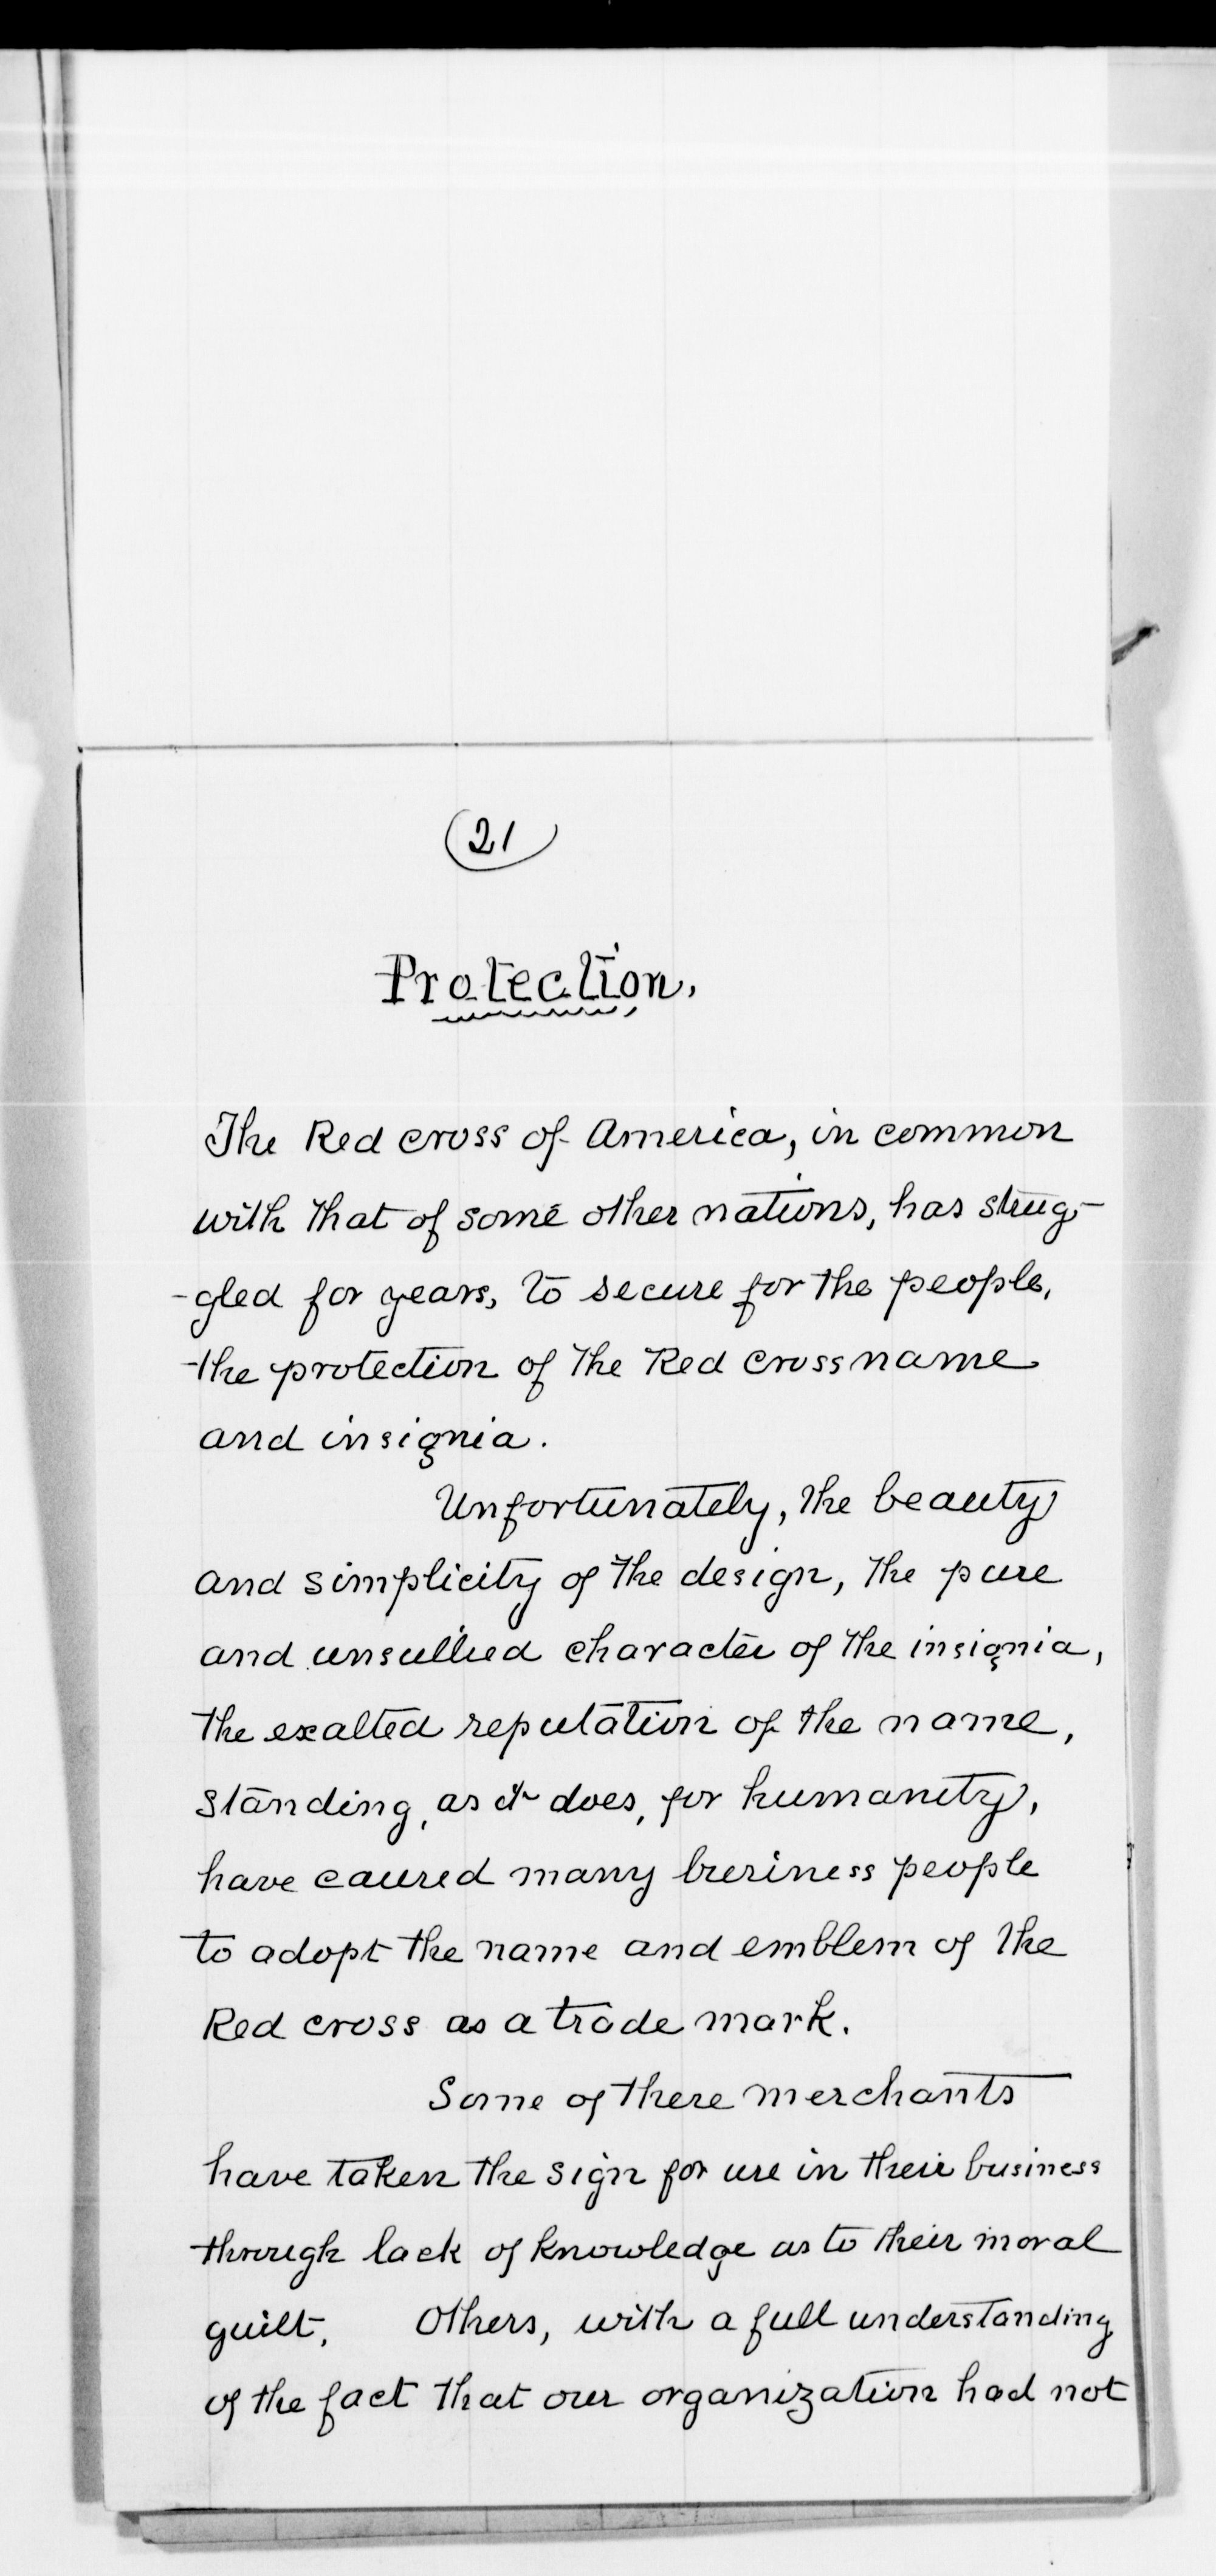 21
Protection.
The Red cross of America, in common
with that of some other nations, has strug-
-gled for years, to secure for the people,
the protection of the Red cross name
and insignia.
Unfortunately, the beauty
and simplicity of the design, the pure
and unsullied character of the insignia,
the exalted reputation of the name,
standing, as it does, for humanity,
have caused many business people
to adopt the name and emblem of the
Red cross as a trade mark.
Some of these merchants
have taken the sign for use in their business
through lack of knowledge as to their moral
guilt. Others, with a full understanding
of the fact that our organization had not